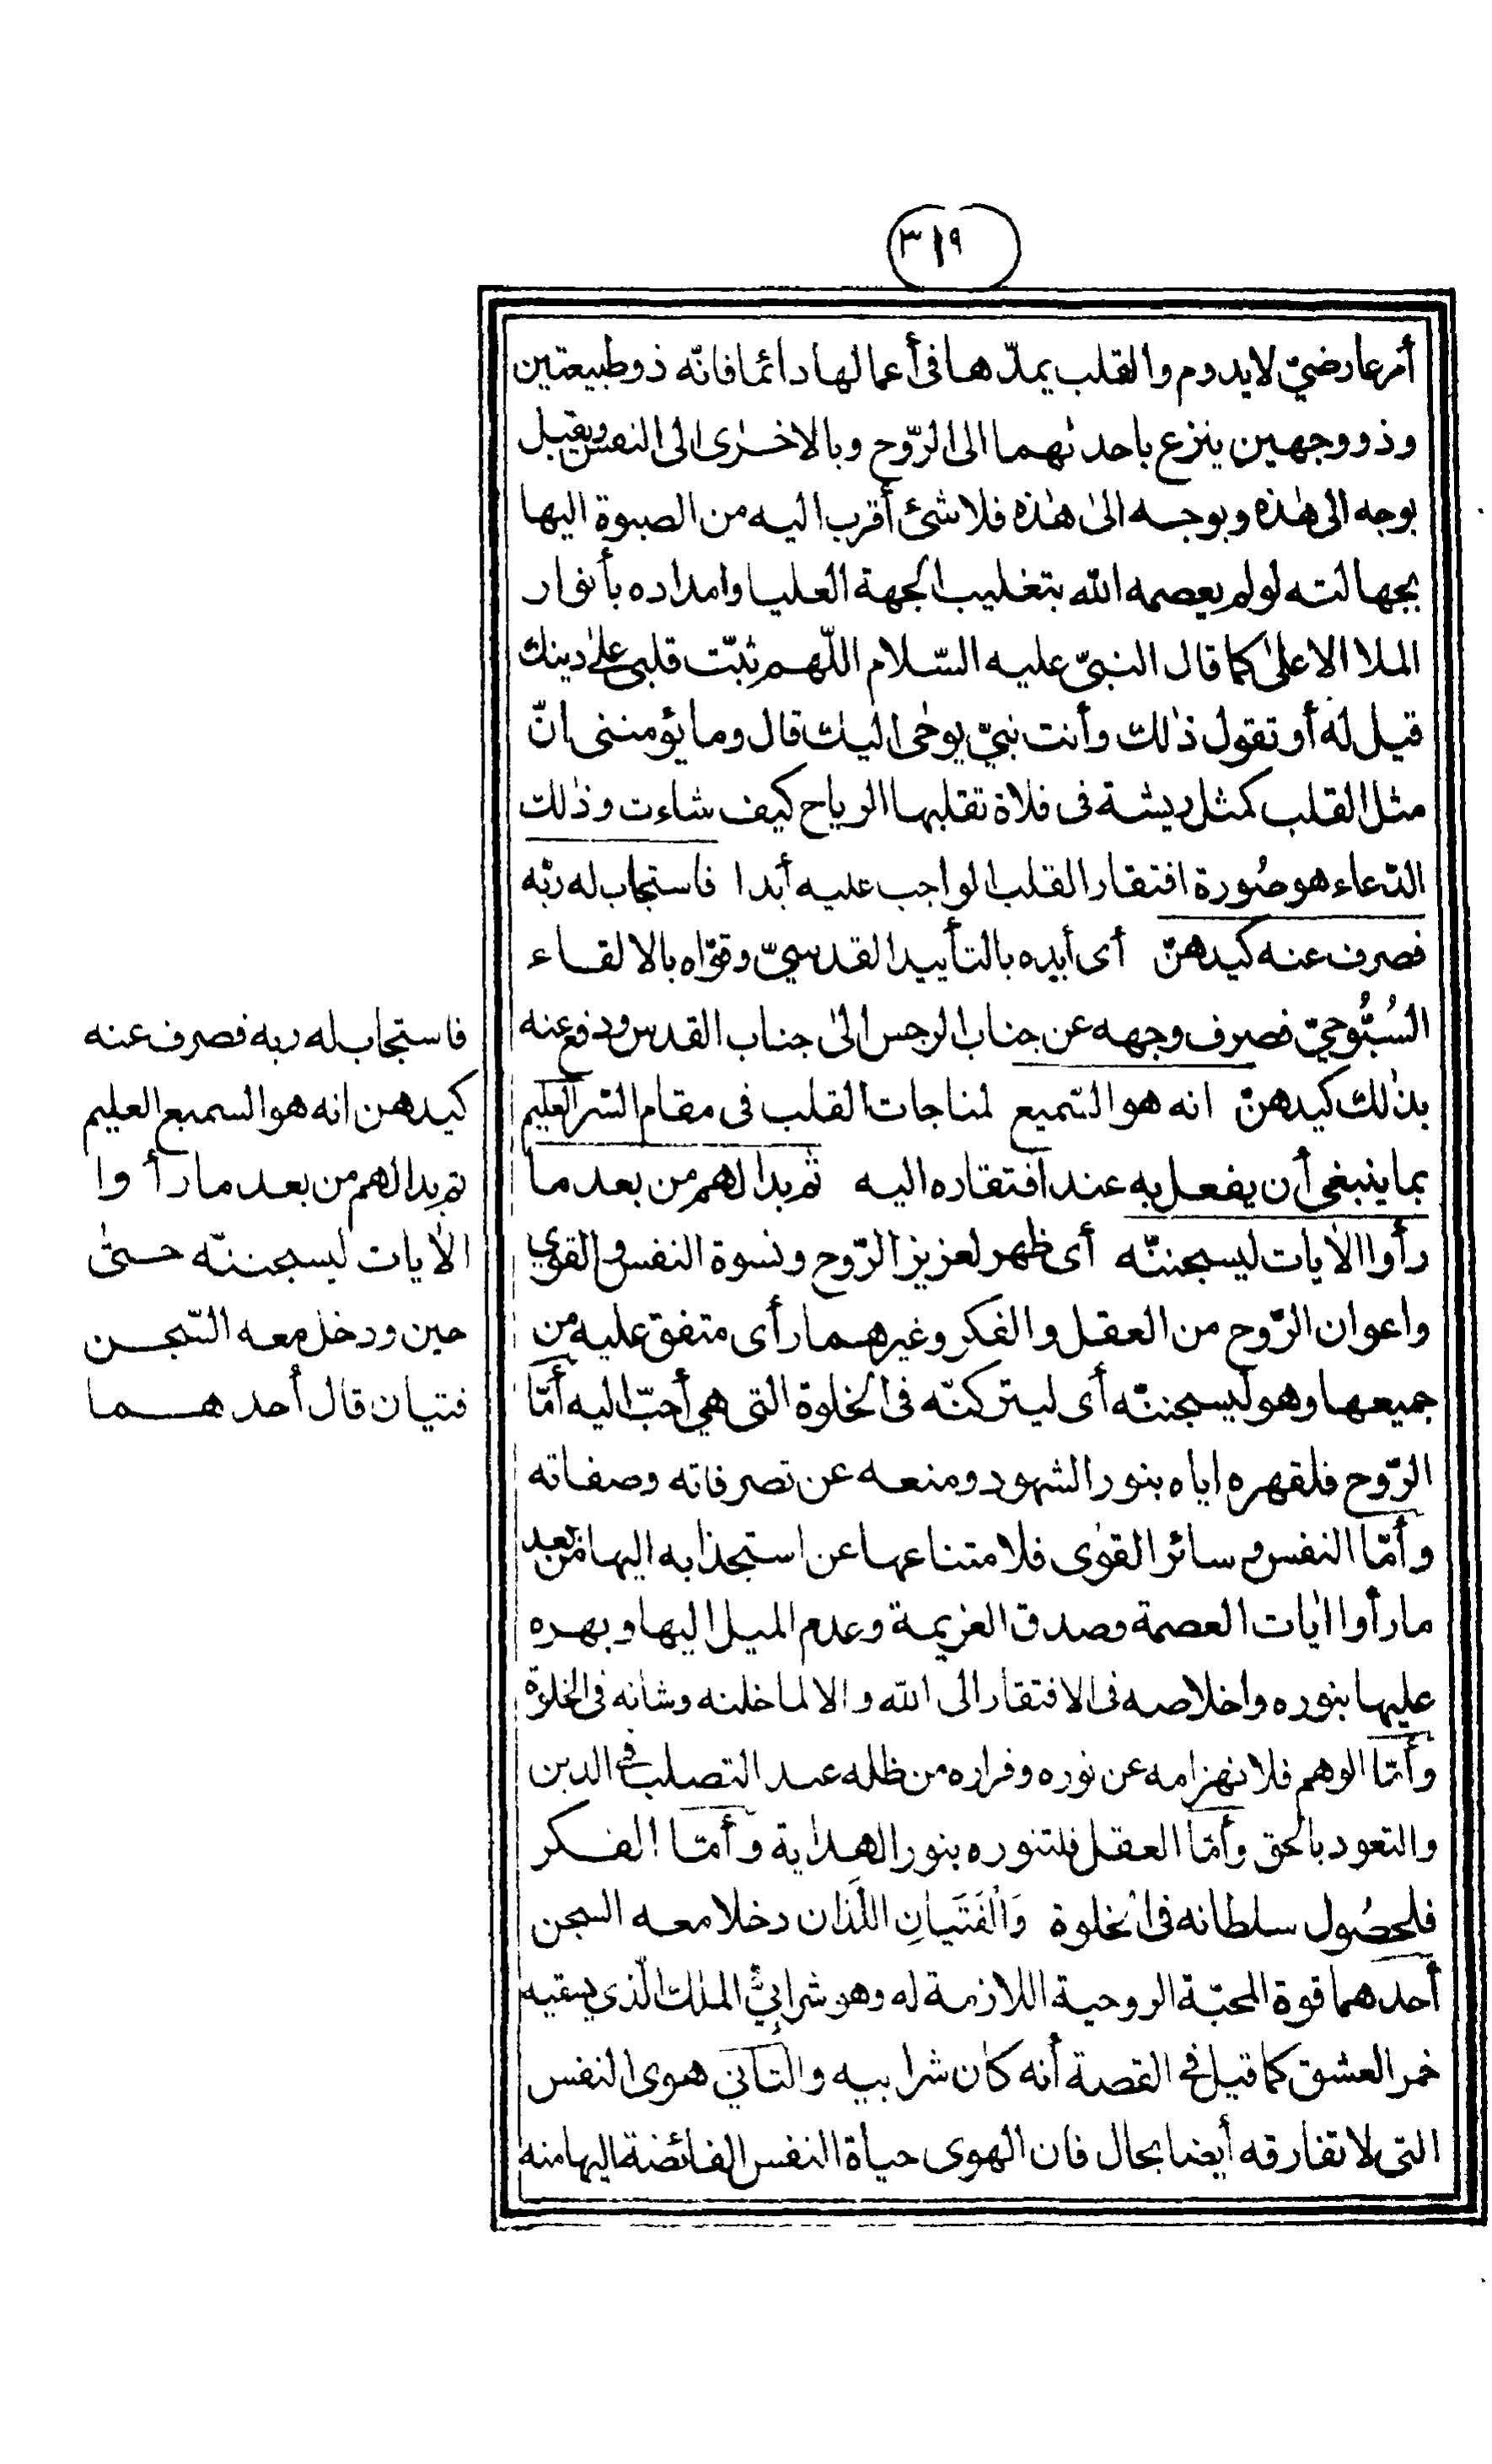 ٣١٩
أمر عارضيّ لا يدوم والقلب يمدّها فى أعمالها دائما فانّه ذو طبيعتين
وذو وجهين ينزع باحدٰىهما الى الرّوح وبالاخرٰى الى النفس ويقبل
بوجه الى هٰذه وبوجه الىٰ هٰذه فلا شئ أقرب اليه من الصبوة اليها
بجهالته لو لم يعصمه الله بتغليب الجهة العليا وامداده بأنوار
الملا الاعلىٰ كما قال النبىّ عليه السّلام اللّهم ثبّت قلبى علىٰ دينك
قيل له أو تقول ذٰلك وأنت نبىّ يوحٰى اليك قال وما يؤمننى انّ
مثل القلب كمثل ريشة فى فلاة تقلبها الرياح كيف شاءت وذٰلك
الدّعاء هو صُورة افتقار القلب الواجب عليه أبدا فاستجاب له ربّه
فصرف عنه كيدهنّ أى أيده بالتأييد القدسىّ وقوّاه بالالقاء
السُّبُّوحىّ فصرف وجهه عن جناب الرجس الىٰ جناب القدس ودفع عنه
بذٰلك كيدهنّ انه هو السّميع لمناجات القلب فى مقام السّر العليم
بما ينبغى أن يفعل به عند افتقاره اليه ثم بدا لهم من بعد ما
رأوا الاٰيات ليسجننّه أى ظهر لعزيز الرّوح ونسوة النفس والقوى
واعوان الرّوح من العقل والفكر وغيرهما رأى متفق عليه من
جميعها وهو ليسجننّه أى ليتركنّه فى الخلوة التى هى أحبّ اليه أمّا
الرّوح فلقهره اياه بنور الشهود ومنعه عن تصرفاته وصفاته
وأمّا النفس وسائر القوٰى فلامتناعها عن استجذابه اليها من بعد
ما رأوا اٰيات العصمة وصدق العزيمة وعدم الميل اليها وبهره
عليها بنوره واخلاصه فى الافتقار الى الله والا لما خلته وشانه فى الخلوة
وأمّا الوهم فلانهزامه عن نوره وفراره من ظله عند التصلب فى الدين
والتعود بالحق وأمّا العقل فلتنوره بنور الهداية وأمّا الفكر
فلحصُول سلطانه فى الخلوة وَالْفَتَيانِ اللَّذان دخلا معه السجن
أحدهما قوة المحبّة الروحية اللازمة له وهو شرابىّ الملك الّذى يسقيه
خمر العشق كما قيل فى القصة أنه كان شرابيه والثانى هوى النفس
التى لا تفارقه أيضا بحال فان الهوى حياة النفس الفائضة اليها منه
فاستجاب له ربه فصرف عنه
كيدهن انه هو السميع العليم
ثم بدا لهم من بعد ما رأ وا
الاٰيات ليسجننّه حتىٰ
حين ودخل معه السّجن
فتيان قال أحدهما